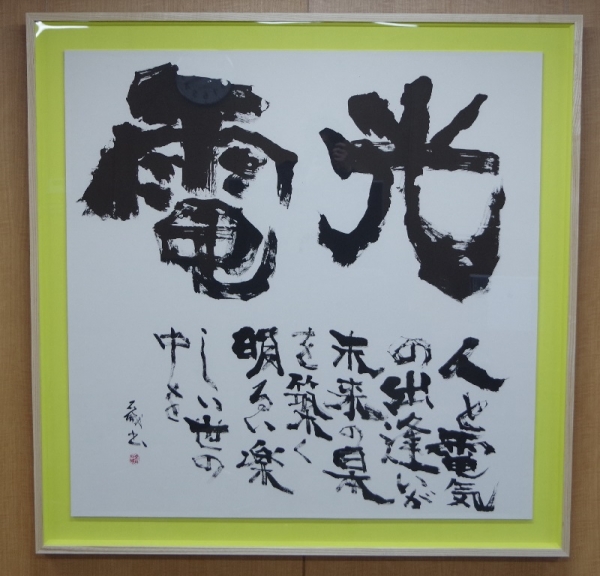 光電
人と電気
の出逢いが
未来の日本
を築く
明るい楽
しい世の
中を